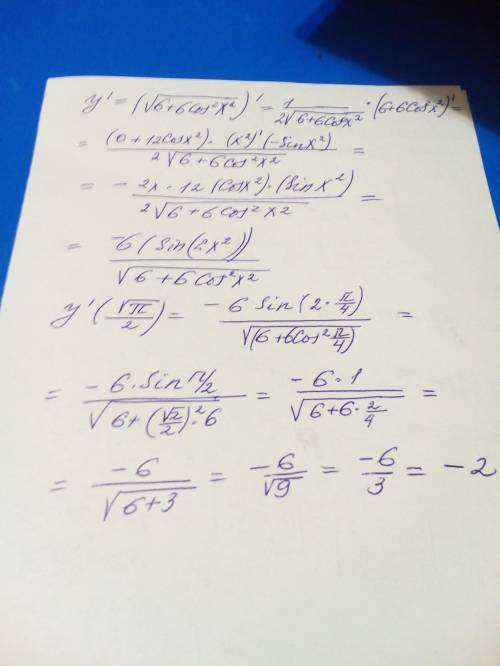 y' = (√(6+6Cos²x²))' = 1/(2√(6+6Cosx²)) · (6+6Cosx²)' =
= ((0+12Cosx²) · (x²)'(-Sinx²))/(2√(6+6Cos²x²)) =
= - (2x · 12 (Cosx²) · (Sinx²))/(2√(6+6Cos²x²)) =
= (-6(Sin(2x²)))/(√(6+6Cos²x²))
y'(√π/2) = (-6 Sin(2·π/4))/(√(6+6Cos²π/4)) =
= (-6·Sinπ/2)/(√(6+(√2/2)²·6)) = (-6·1)/(√(6+6·2/4)) =
= -6/√(6+3) = -6/√9 = -6/3 = -2